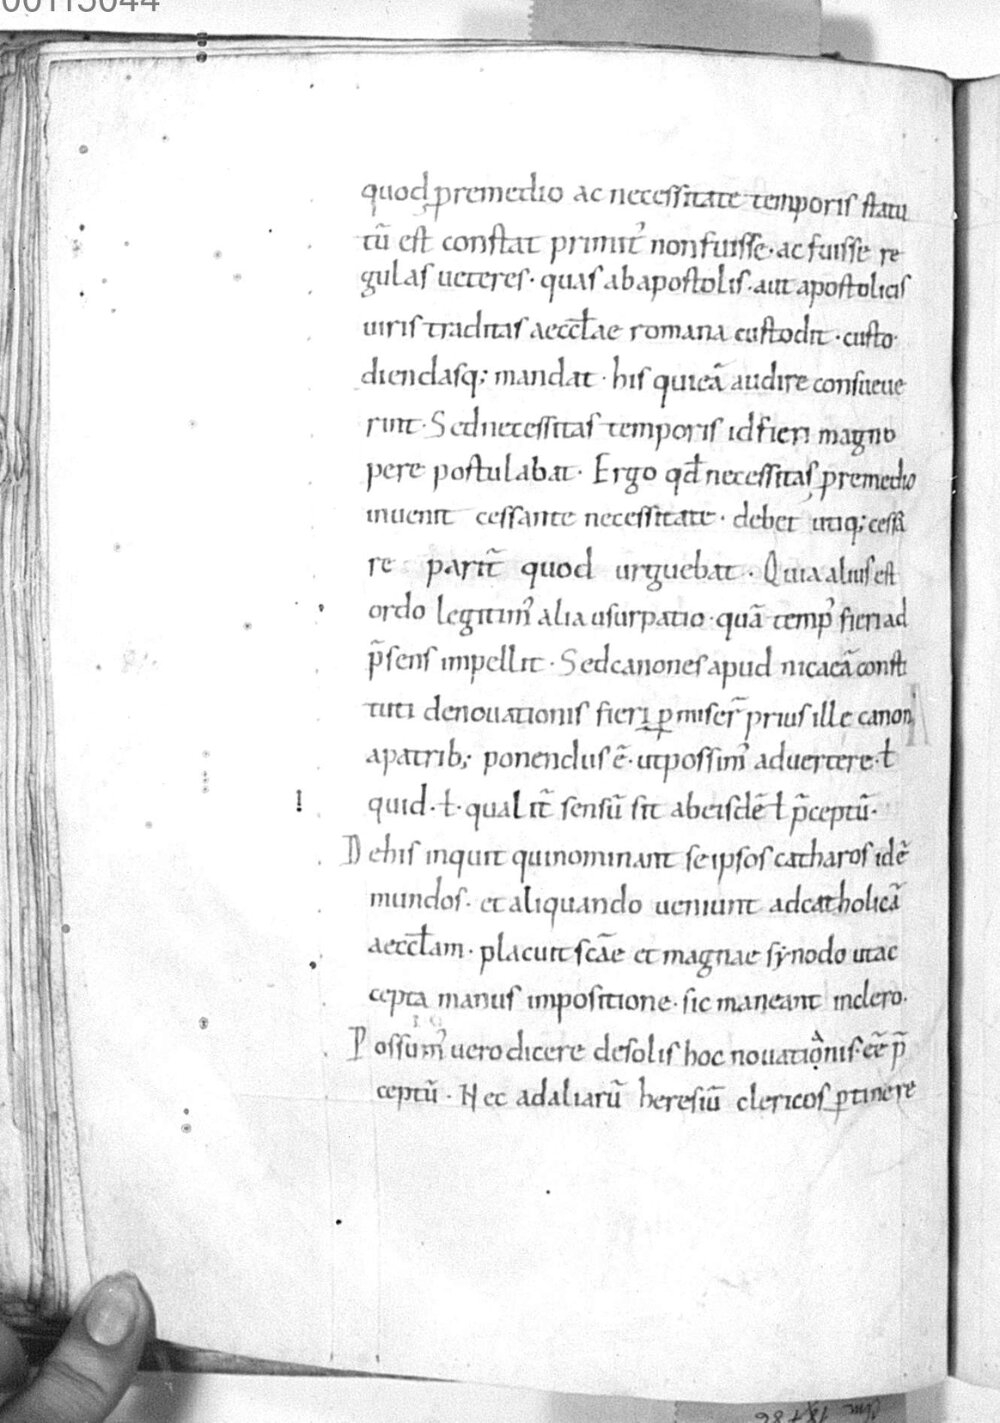 00115044
quod premedio ac necessitate temporis statu
tū est constat primit᷒ non fuisse · ac fuisse re
gulas ueteres · quas ab apostolis · aut apostolicis
uiris traditas aeccłae romana custodit · custo
diendasq; mandat · his qui eā audire consueue
runt · Sed necessitas temporis id fieri magno
pere postulabat · Ergo qđ necessitas premedio
inuenit cessante necessitate · debet utiq; cessa
re parit̄ quod urguebat · Quia alius est
ordo legitim᷒ alia usurpatio · quā temp᷒ fieri ad
p̄sens impellit · Sed canones apud nicaeā consti
tuti de nouationis fieri p̱ miser̄ prius ille canon
a patrib; ponendus ē · ut possim᷒ aduertere · ł
quid · ł · qualit̄ sensū sit ab eisdē ł p̄ceptū ·
De his inquit qui nominant se ipsos catharos idē
mundos · et aliquando ueniunt ad catholicā
aeccłam · placuit scāe et magnae synodo ut ac
cepta manus impositione · sic maneant in clero ·
Possum᷒ uero dicere de solis hoc nouationis · eē p̄
ceptū · Nec ad aliarū heresiū clericos ptinere